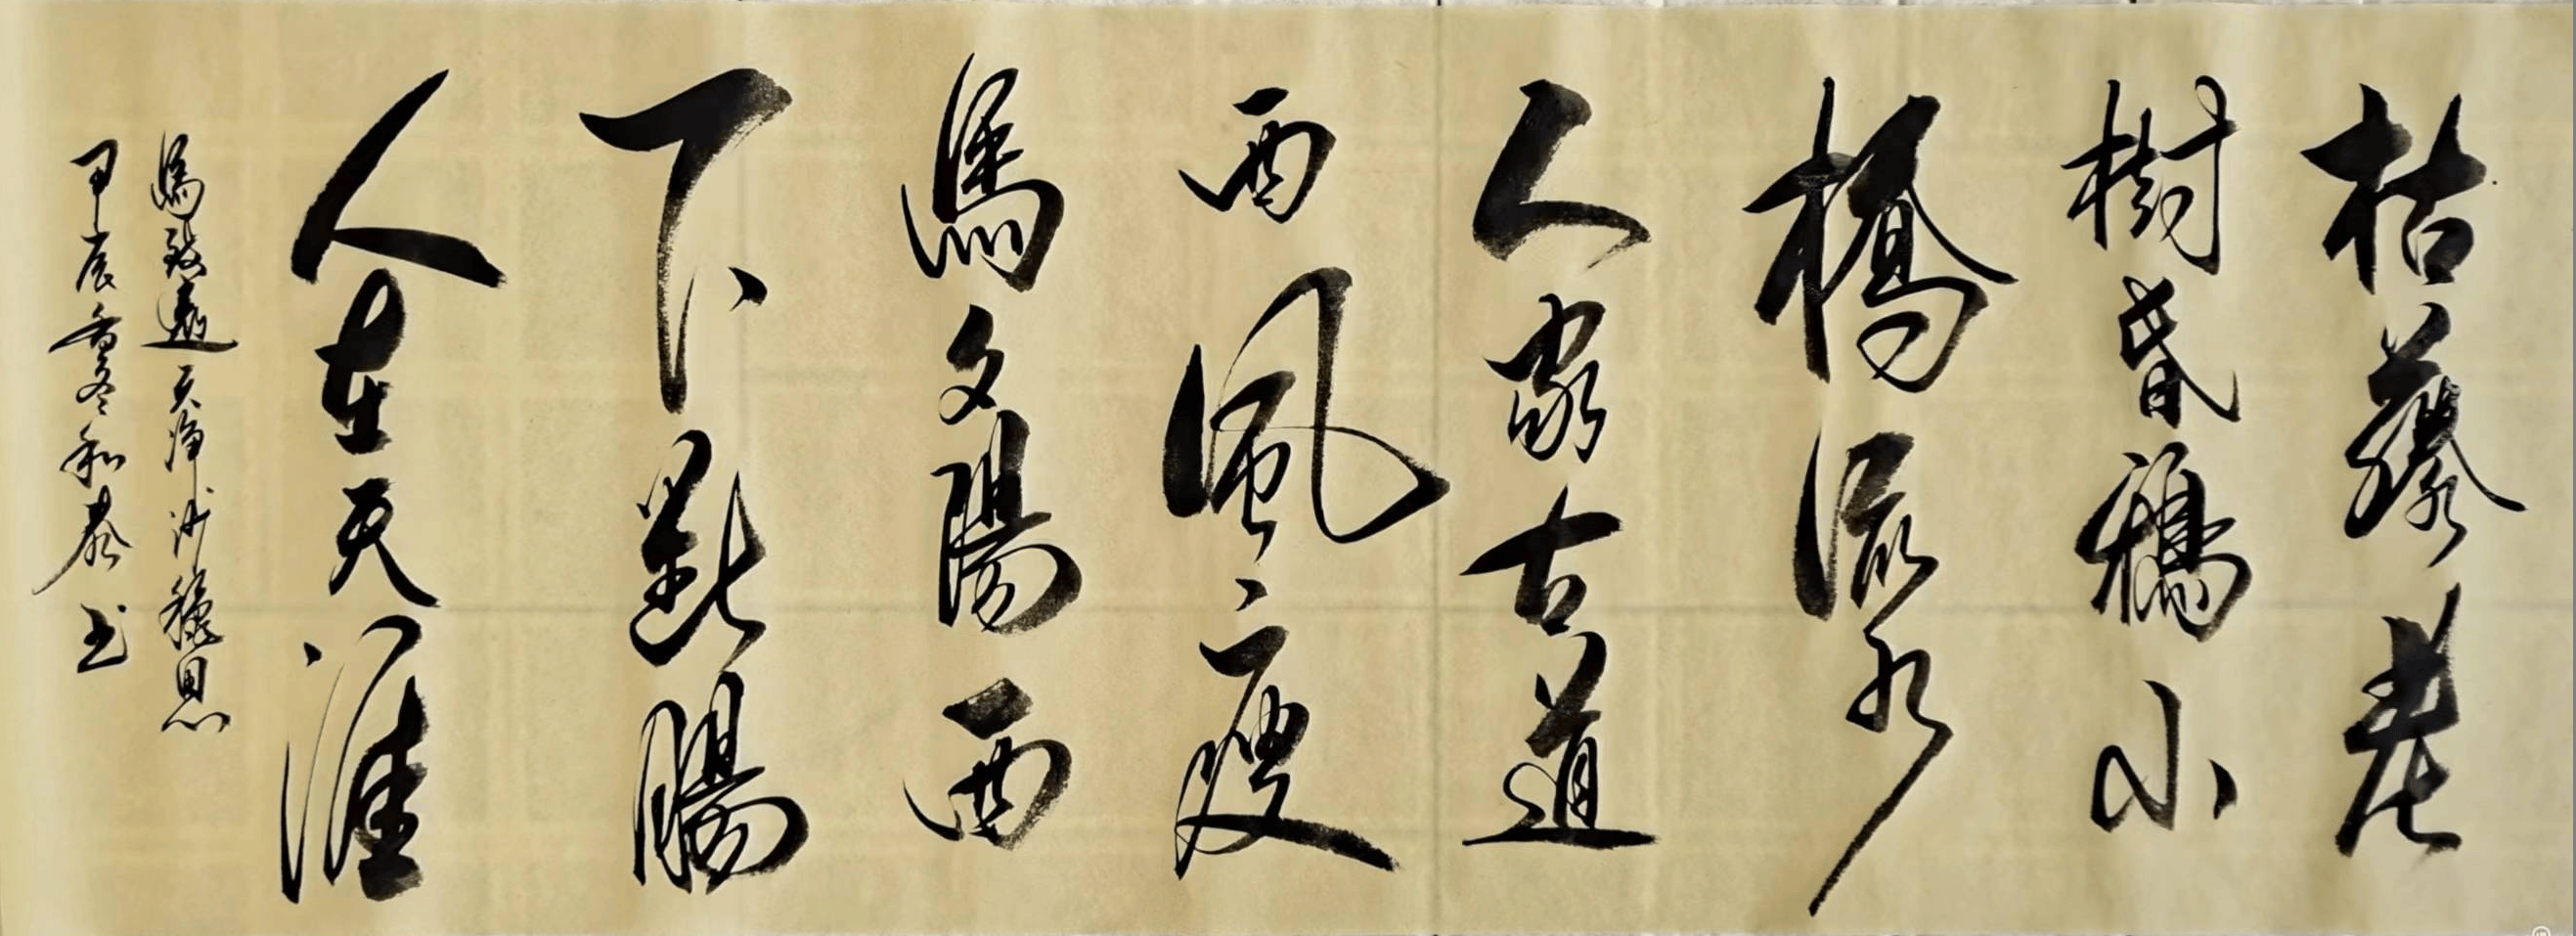 枯藤老
樹昏鴉小
橋流水
人家古道
西風瘦
馬夕陽西
下斷腸
人在天涯
馬致遠天淨沙秋思
甲辰季冬和泰书